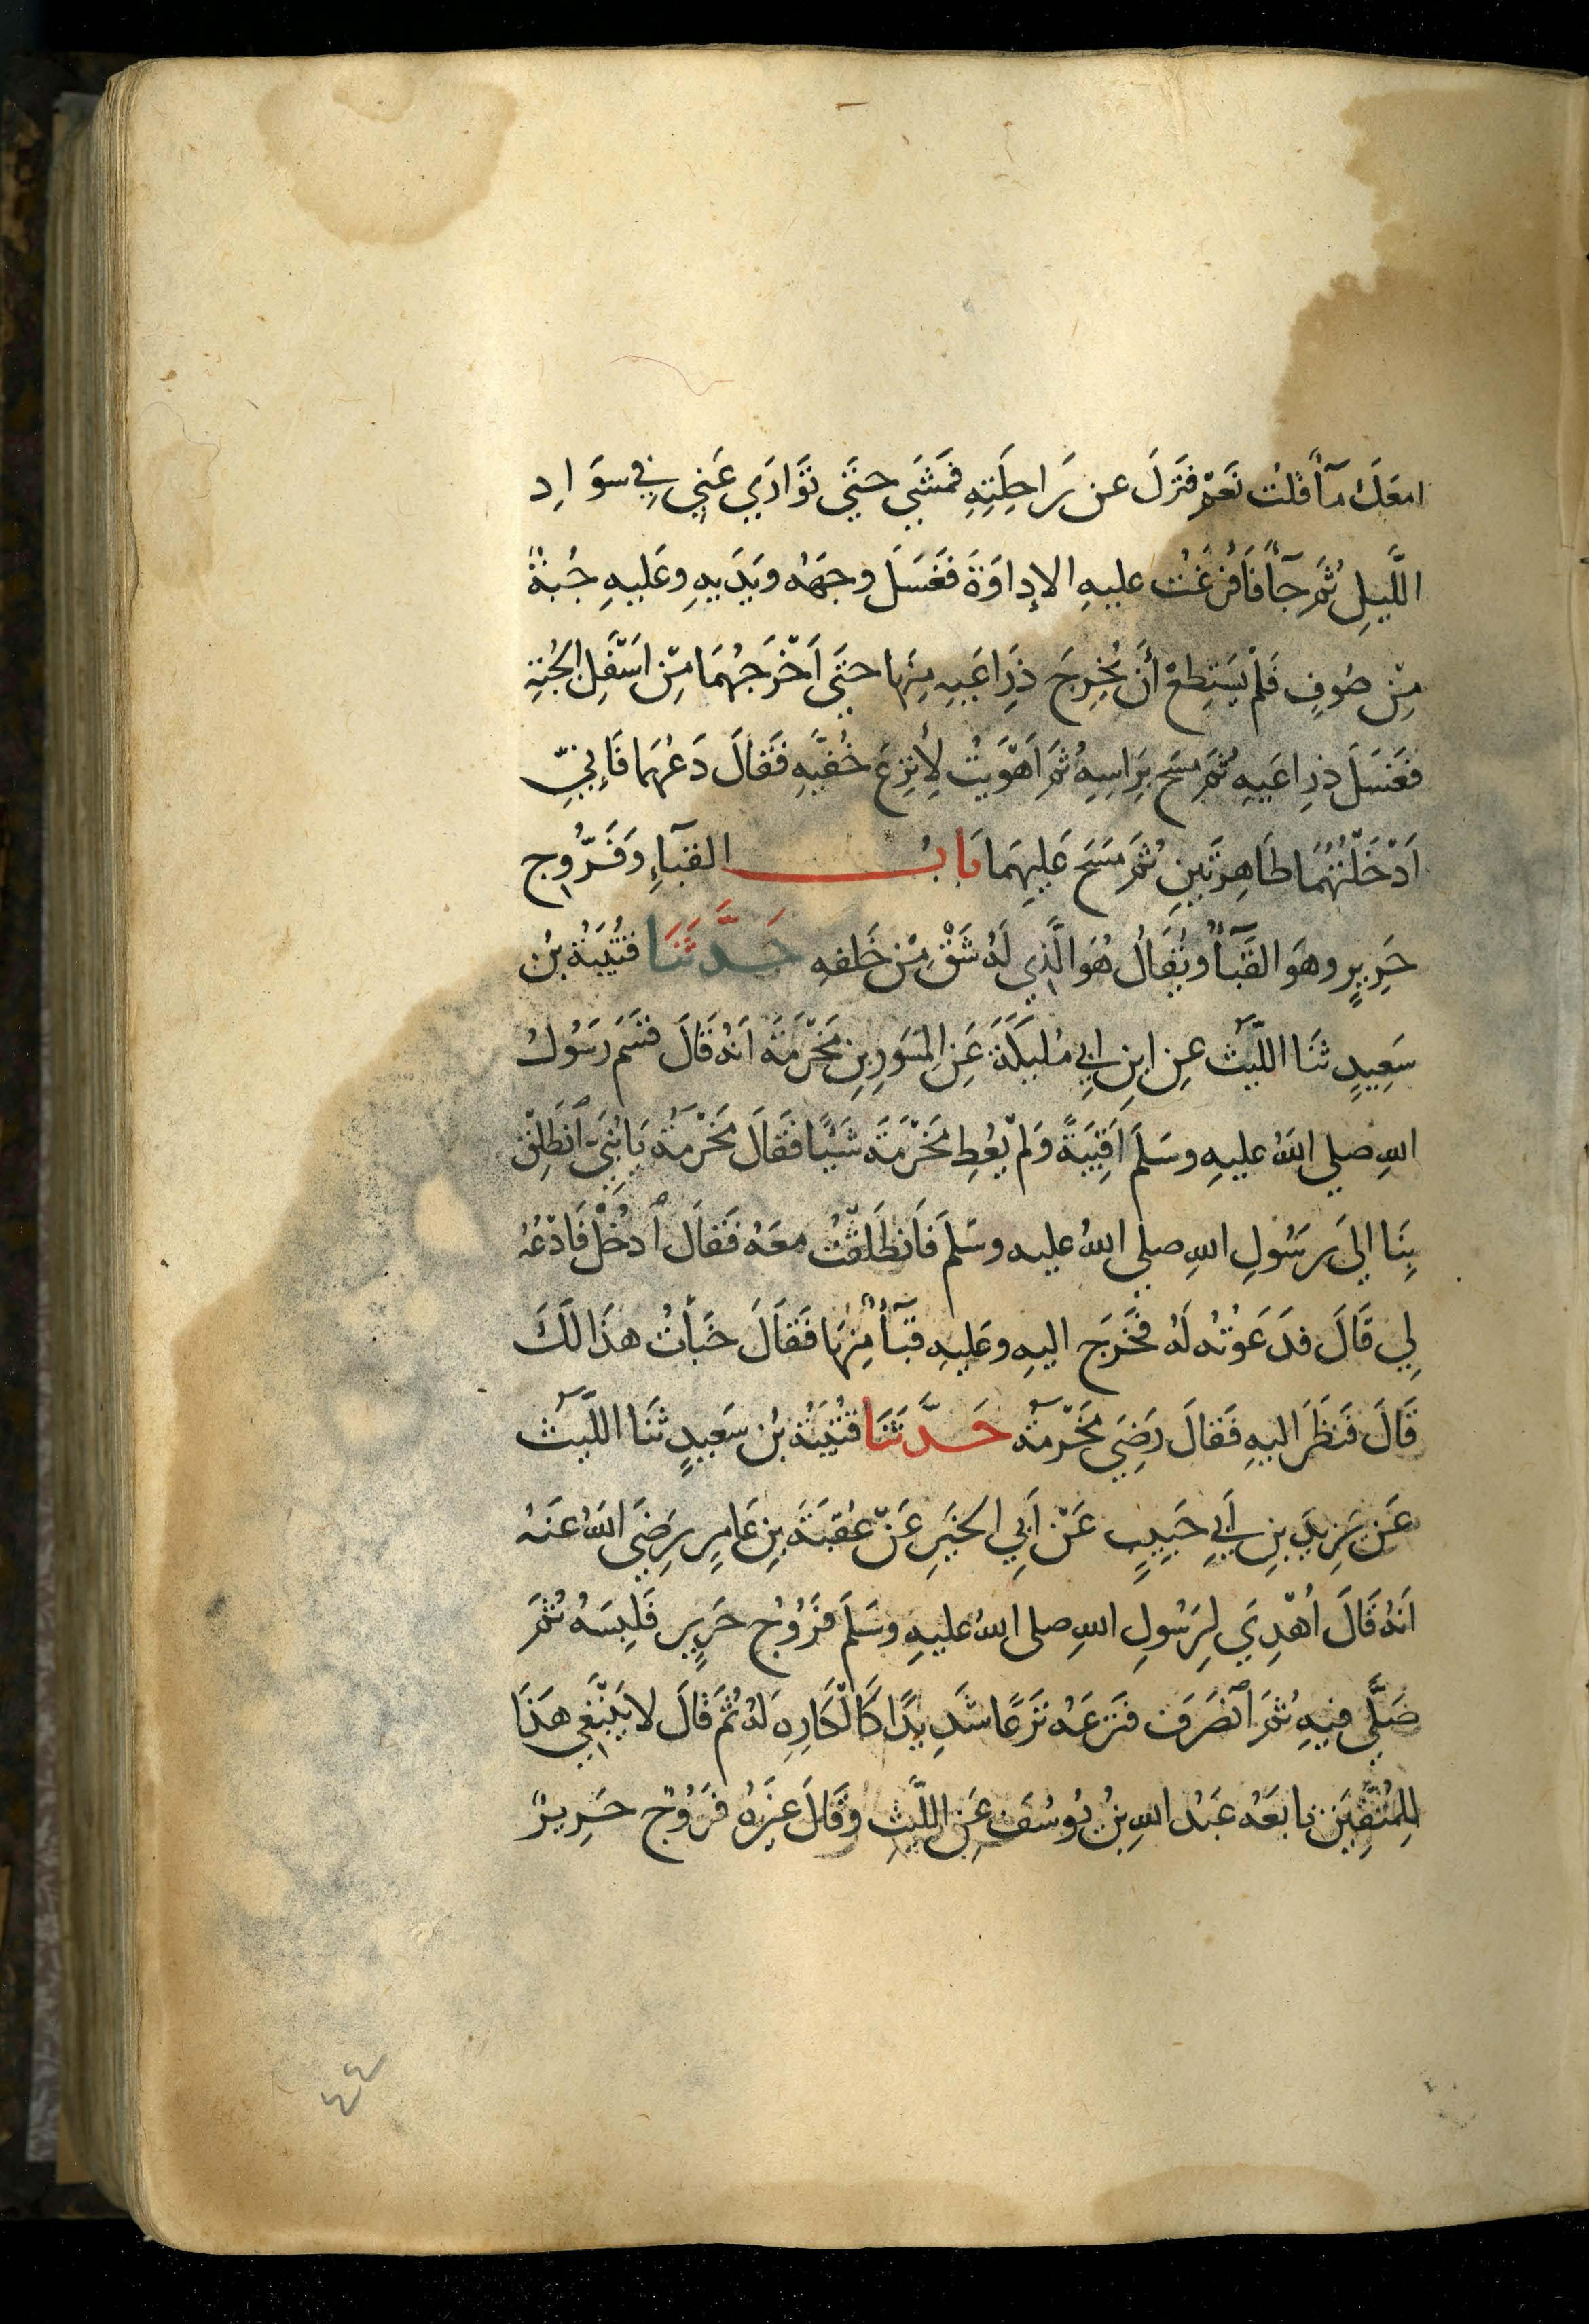 امعَكَ مآءٌ قلتُ نَعَمْ فنَزلَ عن رَاحِلَتِهِ فمَشَي حتَّي تَوَارَي عَنِي في سوَادِ
اللَّيلِ ثُمَّ جآءَ فَأفرَغتُ عليهِ الإدَاوَةَ فَغَسَلَ وجهَهُ ويَدَيهِ وعَليهِ جُبةٌ
مِنْ صُوفٍ فَلَمْ يَسَتِطعْ أنَ يُخرِجَ ذِرَاعَيهِ مِنهَا حتَي اَخْرَجهُمَا مِنْ اسَفَلِ الجُبَةِ
فَغَسَلَ ذِرِاعَيهِ ثُمَّ مسَحَ بِرَاسِهِ ثُمَّ اَهْوَيتُ لِأنزِعَ خُفَّيهِ فَقَالَ دَعْهُمَا فَإنِيّ
اَدْخَلْتُهُمَا طَاهِرتَينِ ثُمَّ مَسَحَ عَليهِمَا بَابُ القبآءِ وَفَرُّوجِ
حَرِيرٍ وهوَ القَبآءُ ويُقَالُ هُوَ الَّذِي لَهُ شَقٌ مِنْ خَلفهِ حَدَّثَنَا قتُيَبَةُ بنُ
سَعِيدٍ ثنَا اللَّيثُ عنِ ابنِ ابِي مُليَكَةَ عَنِ المِسَورِ بنِ مَخْرَمَةَ اَنهُ قَالَ قسَمَ رَسُولُ
اللهِ صلي اللهُ عليهِ وسَلَمَ اَقبِيَةً وَلَمْ يُعطِ مَخْرَمَةَ شَيئًا فَقَالَ مَخْرَمَةُ يَا بُنَيَّ انَطَلِقْ
بِنَا اليَ رسُولِ اللهِ صلي اللهُ عليه وسَلَمَ فَانطَلَقْتُ معَهُ فَقَالَ ادْخُلْ فَادْعُهُ
لِي قَالَ فدَعَوتُه لَهُ فخَرَجَ اليهِ وعَليهِ قبَآءٌ مِنهَا فَقَالَ خَبَأتُ هذَا لَكَ
قَالَ فَنظَرَ اليهِ فَقَالَ رَضِيَ مَخْرَمةُ حَدَّثَنَا قتُيَبَةُ بنُ سَعيدٍ ثنَا اللَّيثُ
عَن يَزِيدَ بنِ أبِي حَبِيبٍ عَنْ أبِي الخَيرِ عَنْ عُقبَةَ بنِ عَامِرٍ رَضِيَ اللهُ عَنهُ
اَنهُ قَالَ اُهْدِيَ لِرَسُولِ اللهِ صلى اللهُ عليهِ وسَلَمَ فرَوُجُ حَرِيرٍ فَلبِسَهُ ثُمَّ
صَلَّي فيهِ ثُمَّ انصَرَفَ فنَزعَهُ نَزعًا شَدِيدًا كَالْكَارِهِ لهُ ثُمَّ قَالَ لا يَنْبَغِي هَذَا
لِلمُتَّقِينَ تابعَهُ عَبدُ اللهِ بنُ يُوسُفَ عَنِ اللَّيثِ وقَالَ غيَرهُ فرَوُجٌ حَرِيرٌ
٤٤